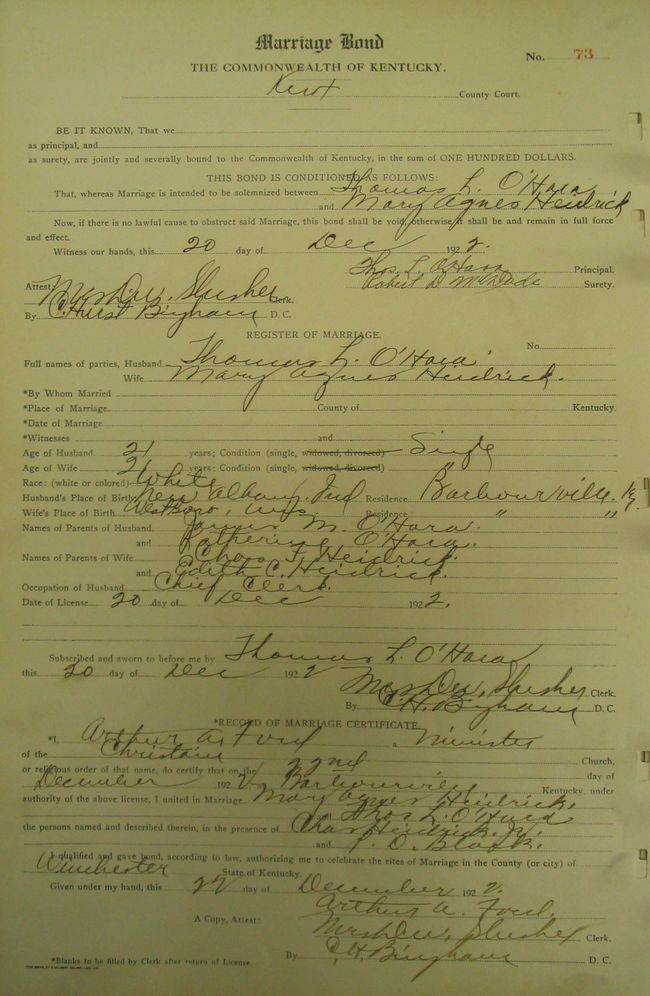 Marriage Bond
No. 73
THE COMMONWEALTH OF KENTUCKY.
Knox County Court.
BE IT KNOWN, That we
as principal, and
as surety, are jointly and severally bound to the Commonwealth of Kentucky, in the sum of ONE HUNDRED DOLLARS.
THIS BOND IS CONDITIONED AS FOLLOWS:
That, whereas Marriage is intended to be solemnized between Thomas L. O'Hara
and Mary Agnes Heidrick
Now, if there is no lawful cause to obstruct said Marriage, this bond shall be void, otherwise it shall be and remain in full force
and effect.
Witness our hands, this 20 day of Dec 1922.
Thos. L. O'Hara Principal.
Robert D. McDade Surety.
Attest: Slusher Clerk.
By C. Hurst Bingham D. C.
REGISTER OF MARRIAGE.
No.
Full names of parties, Husband Thomas L. O'Hara.
Wife Mary Agnes Heidrick.
*By Whom Married
*Place of Marriage County of Kentucky.
*Date of Marriage
*Witnesses and
Age of Husband 21 years; Condition (single, widowed, divorced) Single
Age of Wife 21 years; Condition (single, widowed, divorced) "
Race: (white or colored) White
Husband's Place of Birth New Albany, Ind Residence Barbourville, Ky
Wife's Place of Birth Residence " "
Names of Parents of Husband James M. O'Hara.
and Katherine O'Hara.
Names of Parents of Wife Chas. F. Heidrick.
and Edith C. Heidrick.
Occupation of Husband Chief Clerk.
Date of License 20 day of Dec 1922.
Subscribed and sworn to before me by Thomas L. O'Hara
this 20 day of Dec 1922
Slusher Clerk.
By C. H. Bingham D. C.
*RECORD OF MARRIAGE CERTIFICATE.
*I, Arthur A. Ford, Minister
of the Christain Church,
or religious order of that name, do certify that on the 22nd day of
December 1922, Barbourville Kentucky, under
authority of the above license, I united in Marriage Mary Agnes Heidrick,
and Thos. L. O'Hara
the persons named and described therein, in the presence of Chas Heidrick, Jr.
and J. D. Black.
I qualified and gave bond, according to law, authorizing me to celebrate the rites of Marriage in the County (or city) of
Winchester State of Kentucky.
Given under my hand, this 22 day of December 1922.
Arthur A. Ford.
A Copy, Attest: Slusher Clerk.
By C. H. Bingham D. C.
*Blanks to be filled by Clerk after return of License.